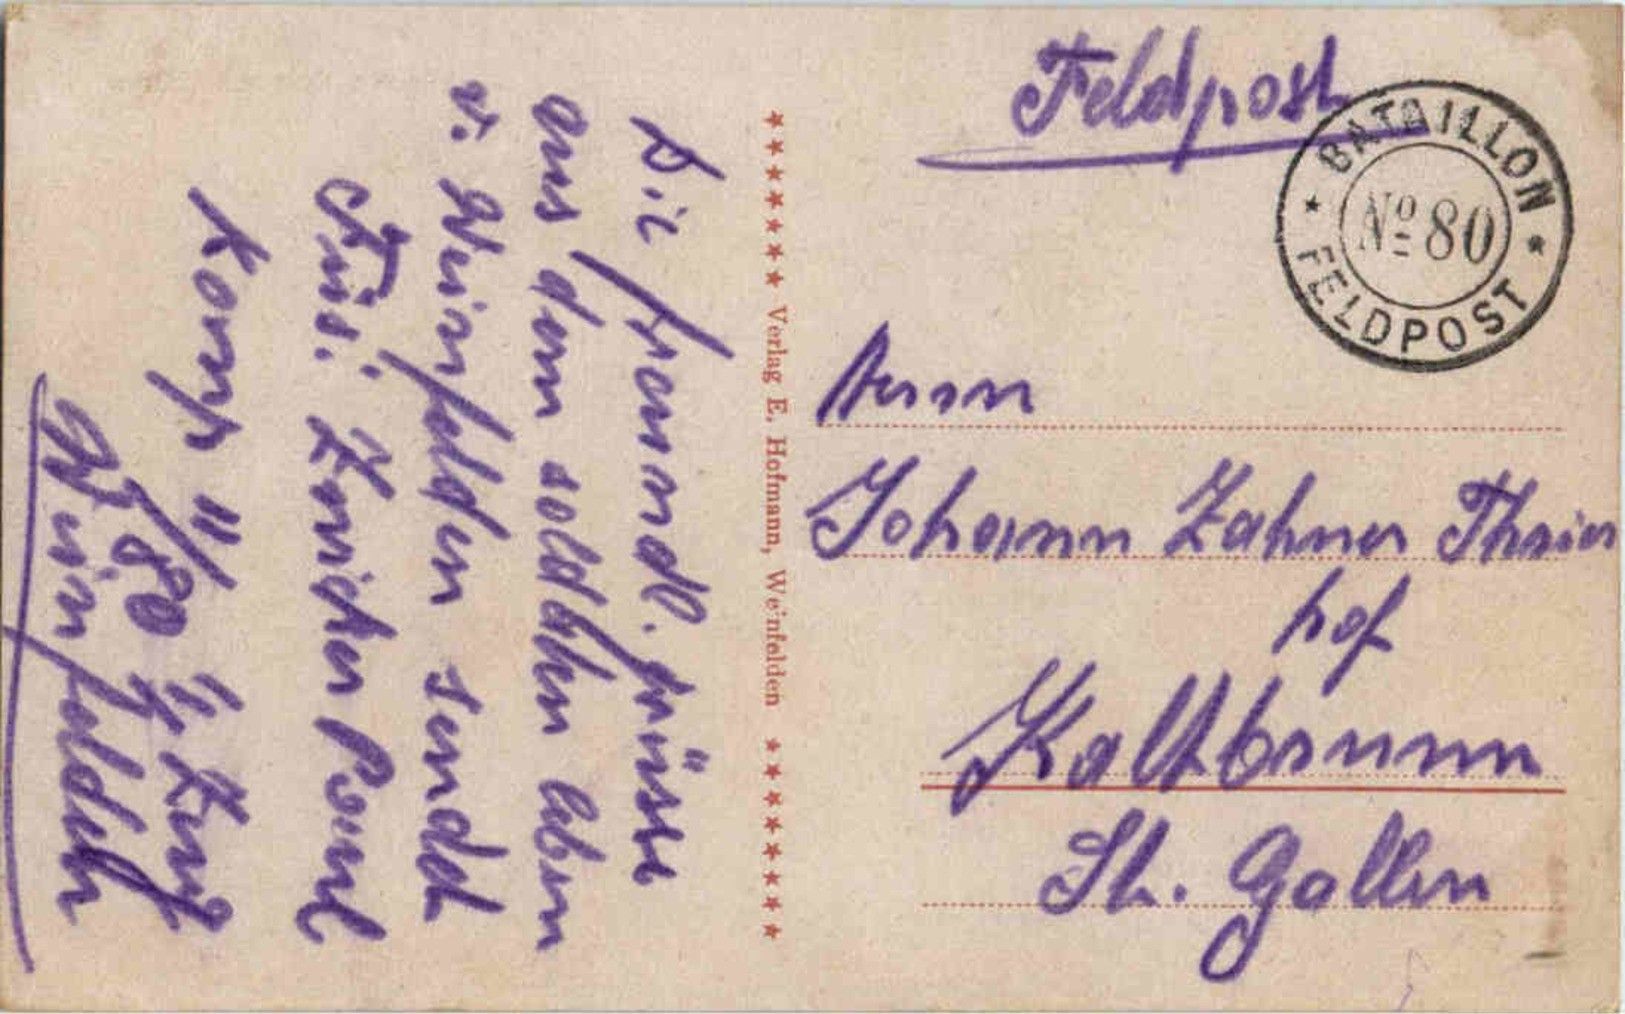 Feldpost
BATAILLON
No 80
FELDPOST
Herrn
Johann Zahner Thier
hof
Kaltbrunn
St. Gallen
Verlag E. Hofmann, Weinfelden
Die freundl. grüsse
aus dem soldaten leben
v. Weinfelden sendet
Füs. Zürcher Paul
Komp II/80
Weinfelden